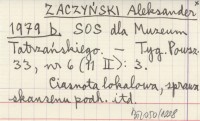 ZACZYŃSKI Aleksander x
1979 b. SOS dla Muzeum
Tatrzańskiego. — Tyg. Powsz.
33, nr 6 (11 II): 3.
Ciasnota lokalowa, sprawa
skansenu podh. itd.